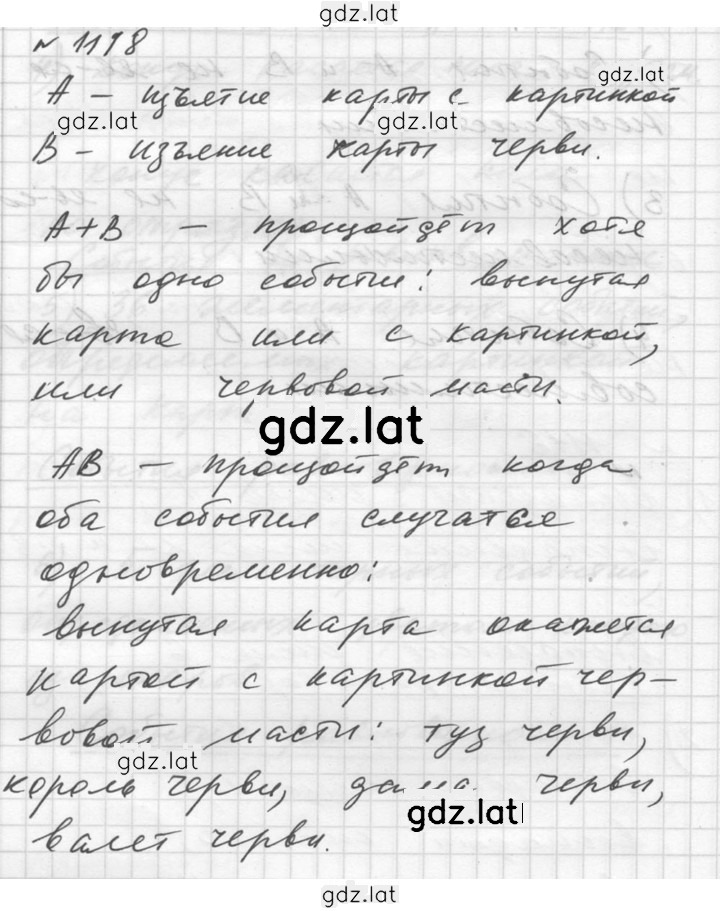 gdz.lat
№ 1198
gdz.lat
A – изъятие карты с картинкой
gdz.lat gdz.lat
B – изъяние карты черви.
A+B – произойдёт хотя
бы одно событие: вынутая
карта или с картинкой,
или червовой масти.
gdz.lat
AB – произойдёт когда
оба события случаться
одновременно:
вынутая карта окажется
картой с картинкой чер-
вовой масти: туз черви,
gdz.lat
король черви, дама черви,
gdz.lat
валет черви.
gdz.lat